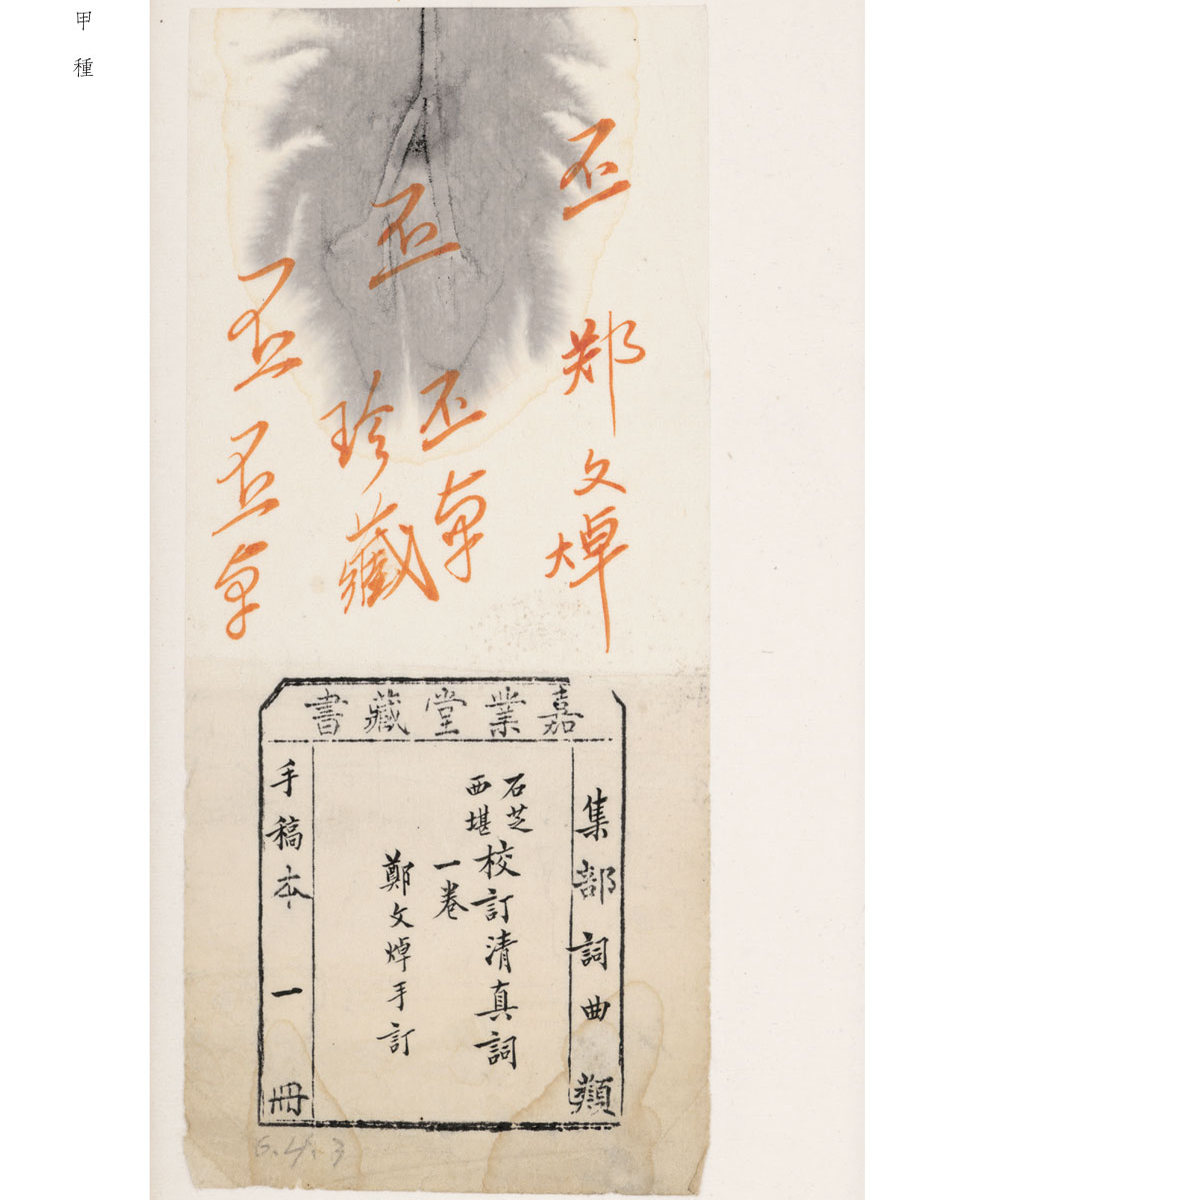 甲種
丕
郑文焯
丕
丕卓
珍藏
丕
丕卓
嘉業堂藏書
集部詞曲類
石芝西堪校訂清真詞
一卷
鄭文焯手訂
手稿本一冊
6.4.3